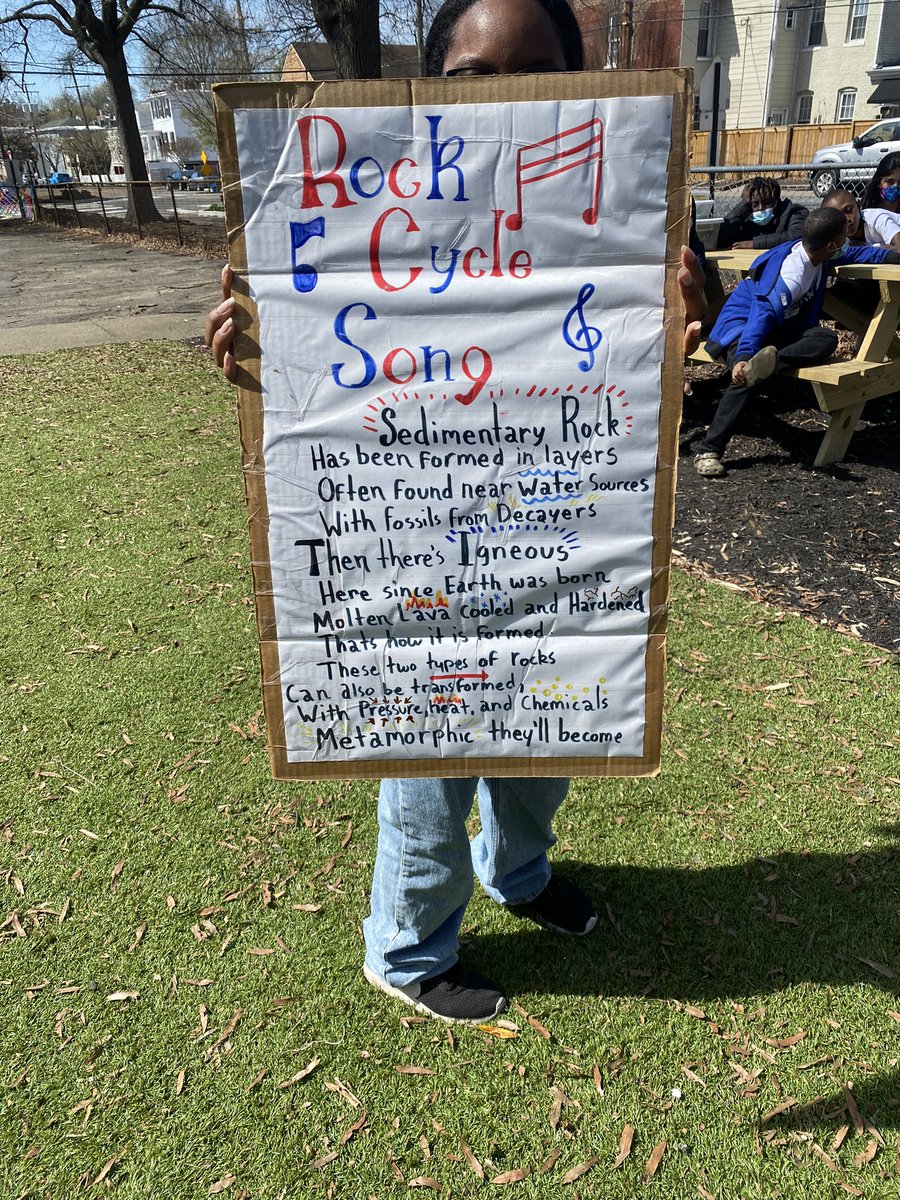 Rock
Cycle
Song
Sedimentary Rock
Has been formed in layers
Often found near Water Sources
With fossils from Decayers
Then there's Igneous
Here since Earth was born
Molten Lava Cooled and Hardened
Thats how it is formed
These two types of rocks
Can also be transformed,
With Pressure, heat, and Chemicals
Metamorphic they'll become